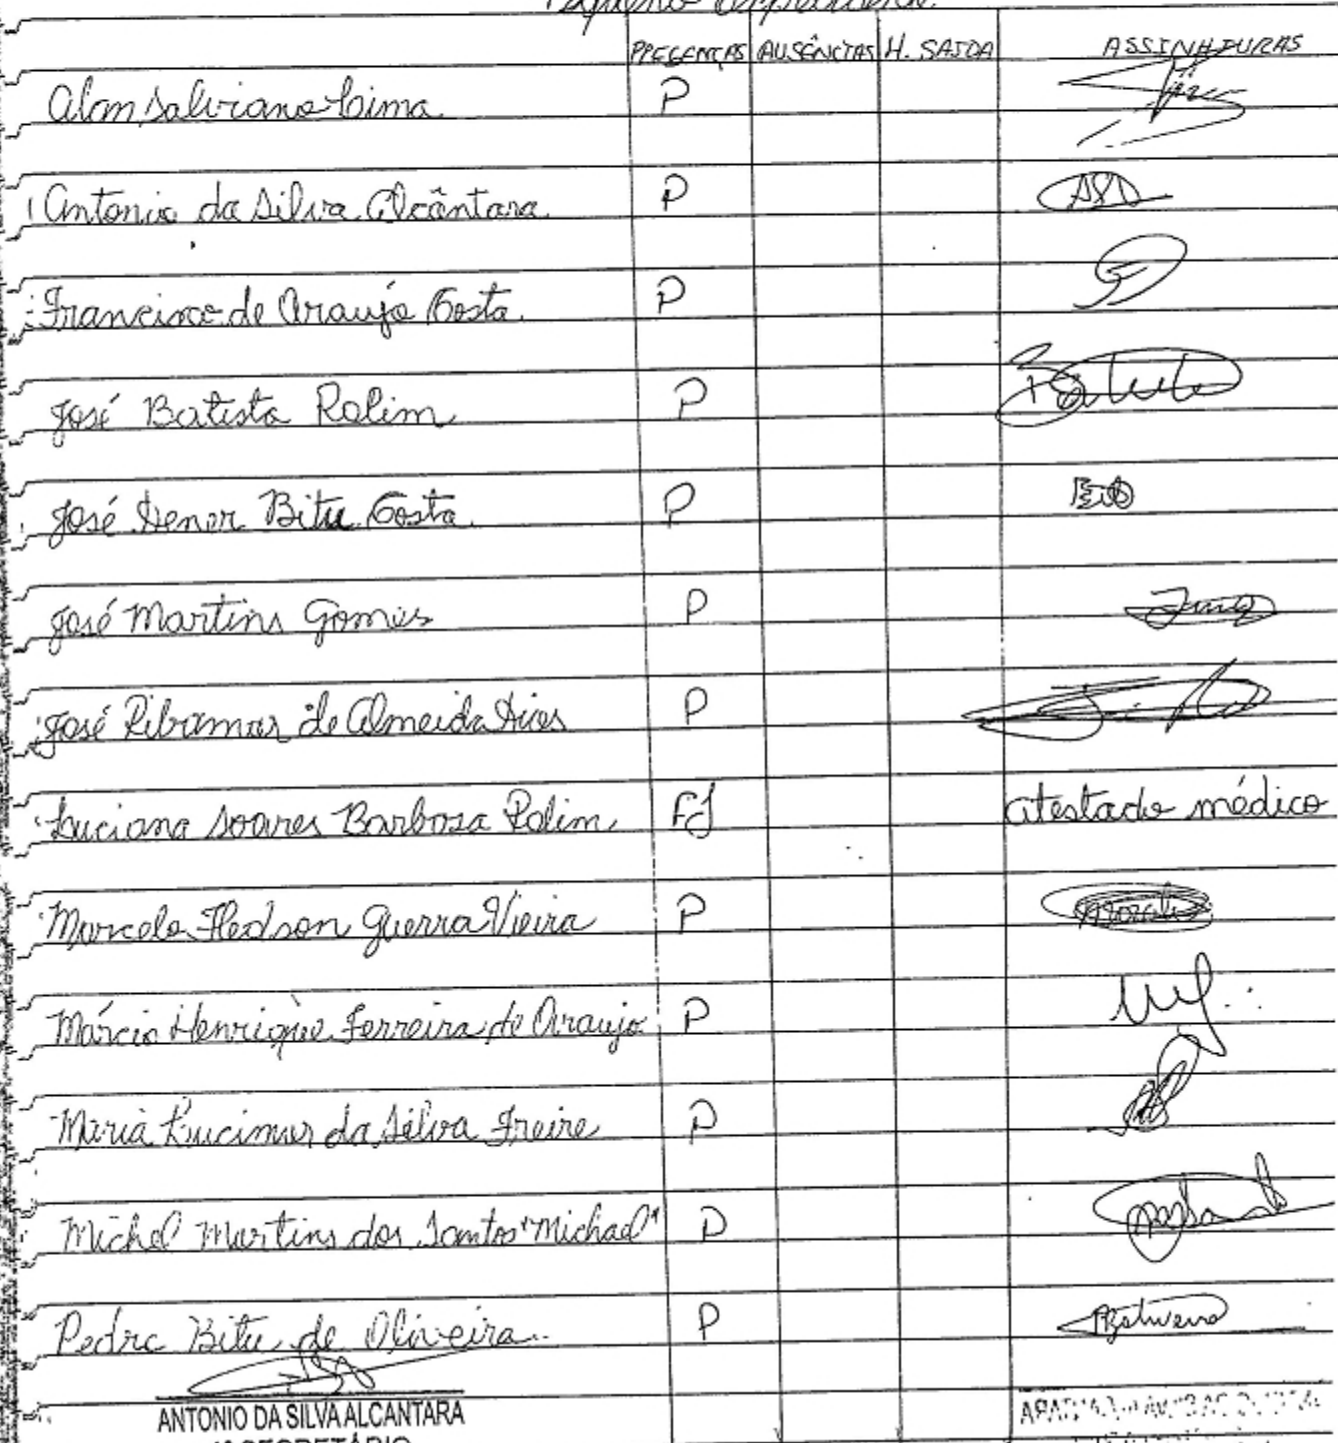 PRESENÇAS AUSÊNCIAS H. SAIDA ASSINATURAS
Alan Salviano Lima P
Antonio da Silva Alcântara P
Francisco de Araujo Costa P
José Batista Rolim P
José Hener Bitu Costa P
José Martins Gomes P
José Ribamar de Almeida Aires P
Luciana Soares Barbosa Rolim FJ atestado médico
Marcelo Hedson Guerra Vieira P
Márcio Henrique Ferreira de Araujo P
Maria Lucimar da Silva Freire P
Michel Martins dos Santos "Michael" P
Pedro Bitu de Oliveira P
ANTONIO DA SILVA ALCANTARA
1º SECRETÁRIO